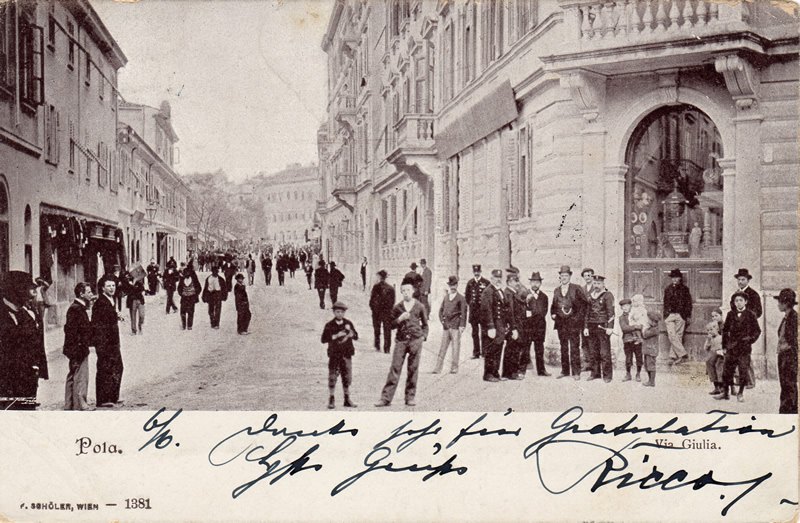 Pola. 6/6. Danke sehr für Gratulation
Via Giulia.
Grüße Ricco.
F. SCHÖLER, WIEN — 1381